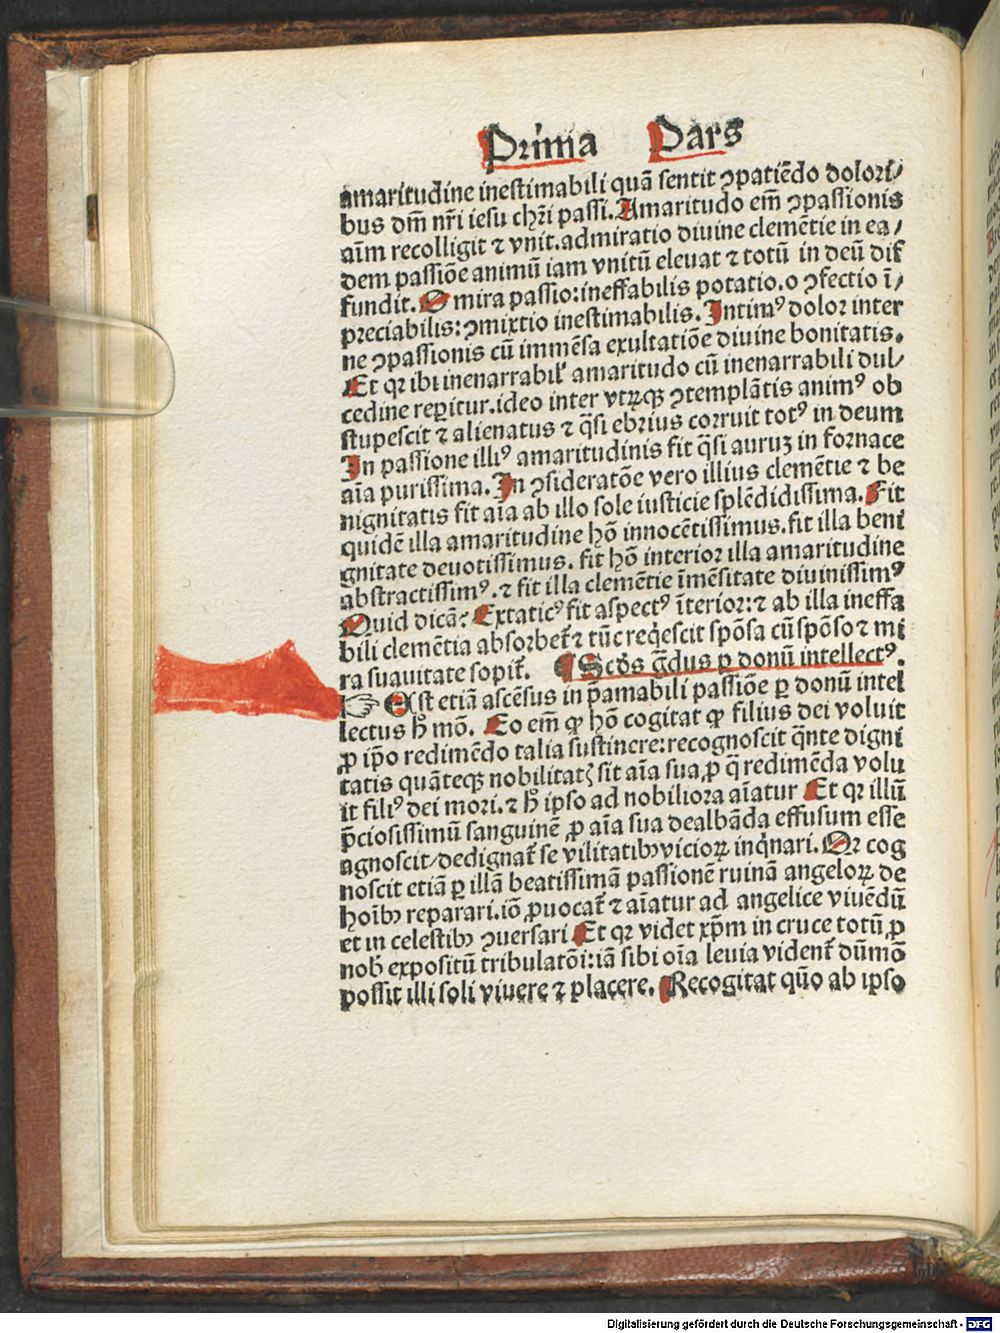 Prima Pars
amaritudine inestimabili quā sentit ꝯpatiēdo dolori/
bus dm̄ nr̄i iesu chr̄i passi. Amaritudo em̄ ꝯpassionis
aīm recolligit ⁊ vnit. admiratio diuine clemētie in ea/
dem passiōe animū iam vnitū eleuat ⁊ totū in deū dif
fundit. O mira passio: ineffabilis potatio. o ꝯfectio ī/
preciabilis: ꝯmixtio inestimabilis. Intimꝰ dolor inter
ne ꝯpassionis cū immēsa exultatiōe diuine bonitatis.
Et qꝛ ibi inenarrabil' amaritudo cū inenarrabili dul/
cedine reꝑitur. ideo inter vtrꝫqꝫ ꝯtemplātis animꝰ ob
stupescit ⁊ alienatus ⁊ q̄si ebrius corruit totꝰ in deum
In passione illiꝰ amaritudinis fit q̄si auruꝫ in fornace
aīa purissima. In ꝯsideratōe vero illius clemētie ⁊ be
nignitatis fit aīa ab illo sole iusticie splēdidissima. Fit
quidē illa amaritudine hō innocētissimus. fit illa beni
gnitate deuotissimus. fit hō interior illa amaritudine
abstractissimꝰ. ⁊ fit illa clemētie īmēsitate diuinissimꝰ
Quid dicā? Extaticꝰ fit aspectꝰ īterior: ⁊ ab illa ineffa
bili clemētia absorbet̄ ⁊ tūc reqͥescit spōsa cū spōso ⁊ mi
ra suauitate sopit̄. ¶ Scd̄s gͣdus ꝑ donū intellectꝰ.
☞ Est etiā ascēsus in p̄amabili passiōe ꝑ donū intel
lectus h̄ mō. Eo em̄ ꝙ hō cogitat ꝙ filius dei voluit
ꝓ ip̄o redimēdo talia sustinere: recognoscit qͣnte digni
tatis quāteqꝫ nobilitatꝭ sit aīa sua, ꝓ q̄ redimēda volu
it filiꝰ dei mori. ⁊ h̄ ipso ad nobiliora aīatur Et qꝛ illū
p̄ciosissimū sanguinē ꝓ aīa sua dealbāda effusum esse
agnoscit/dedignat̄ se vilitatibꝰ vicioꝝ inqͥnari. Qꝛ cog
noscit etiā ꝑ illā beatissimā passionē ruinā angeloꝝ de
hoībꝰ reparari. iō ꝓuocat̄ ⁊ aīatur ad angelice viuēdū
et in celestibꝰ ꝯuersari Et qꝛ videt xp̄m in cruce totū ꝓ
nob̄ expositū tribulatōi: iā sibi oīa leuia vident̄ dūmō
possit illi soli viuere ⁊ placere. Recogitat quō ab ipso
Digitalisierung gefördert durch die Deutsche Forschungsgemeinschaft - DFG